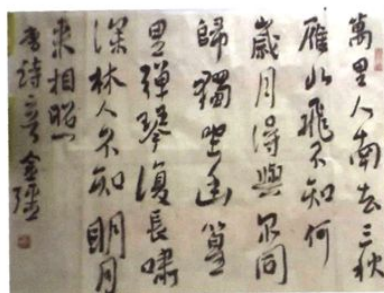 萬里人南去三秋
雁北飛不知何
歲月得與尔同
歸獨坐幽篁
里彈琴復長嘯
深林人不知明月
来相照
詩 金